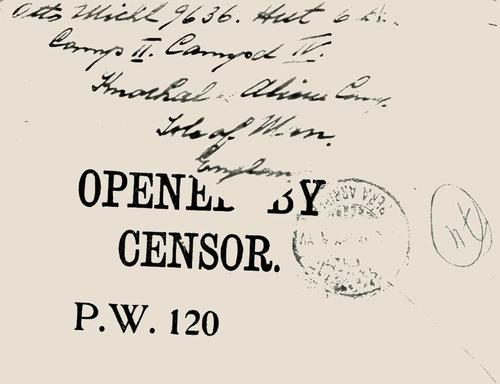 Otto Michl 9636. Hut 6
Camp II. Compd IV.
Knockal - Aliens Camp.
Isle of Man.
England
OPENED BY
CENSOR.
P.W. 120